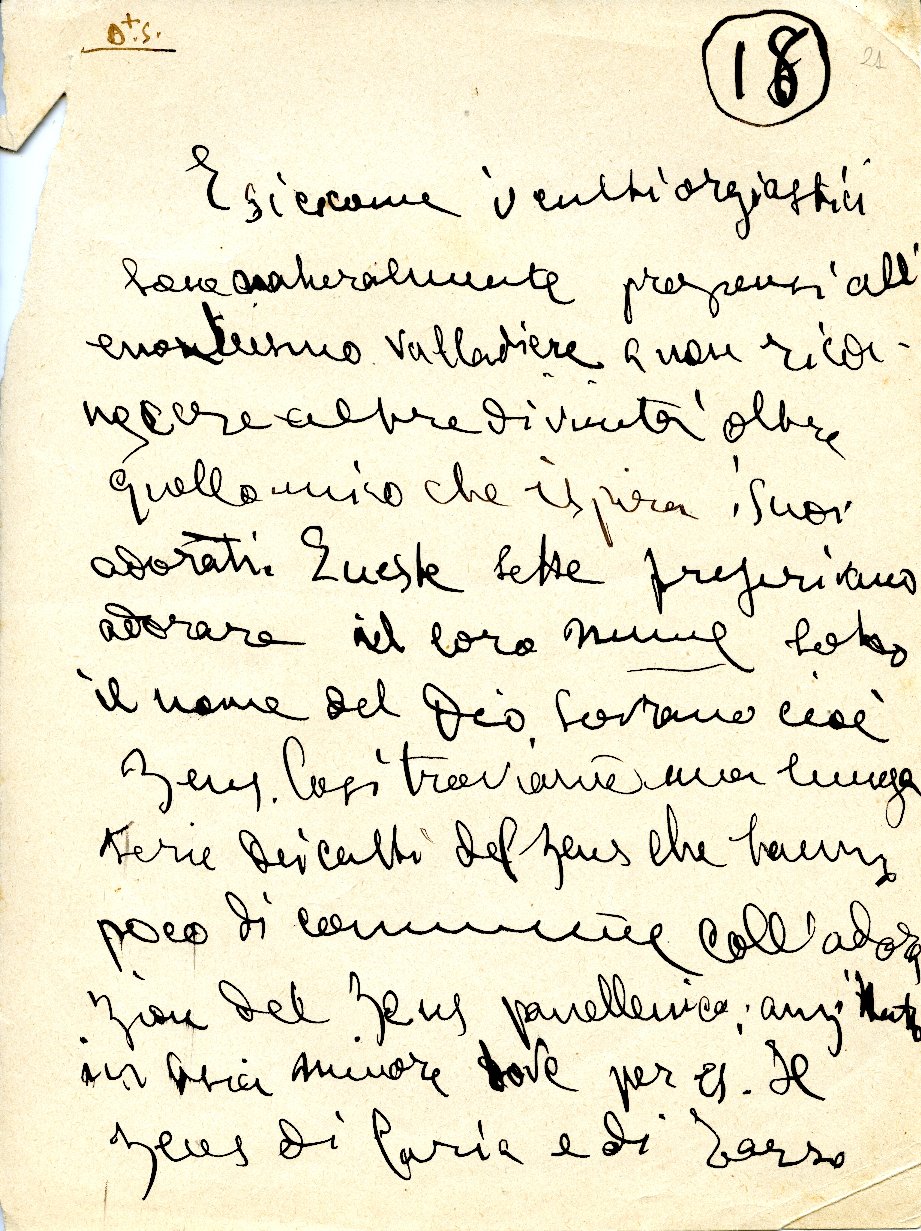 D+S.
18
21
E siccome i culti orgiastici
sono naturalmente propensi all'
enoteismo vale a dire a non rico-
noscere altre divinità oltre
quella unica che ispira i suoi
adorati. Queste sette preferivano
adorare il loro nume sotto
il nome del Dio sovrano cioè
Zeus. Così troviamo una lunga
serie dei culti del Zeus che hanno
poco di comune coll'adora
zion del Zeus panellenico; anzi
in Asia minore dove per es. Il
Zeus di Caria e di Tarso